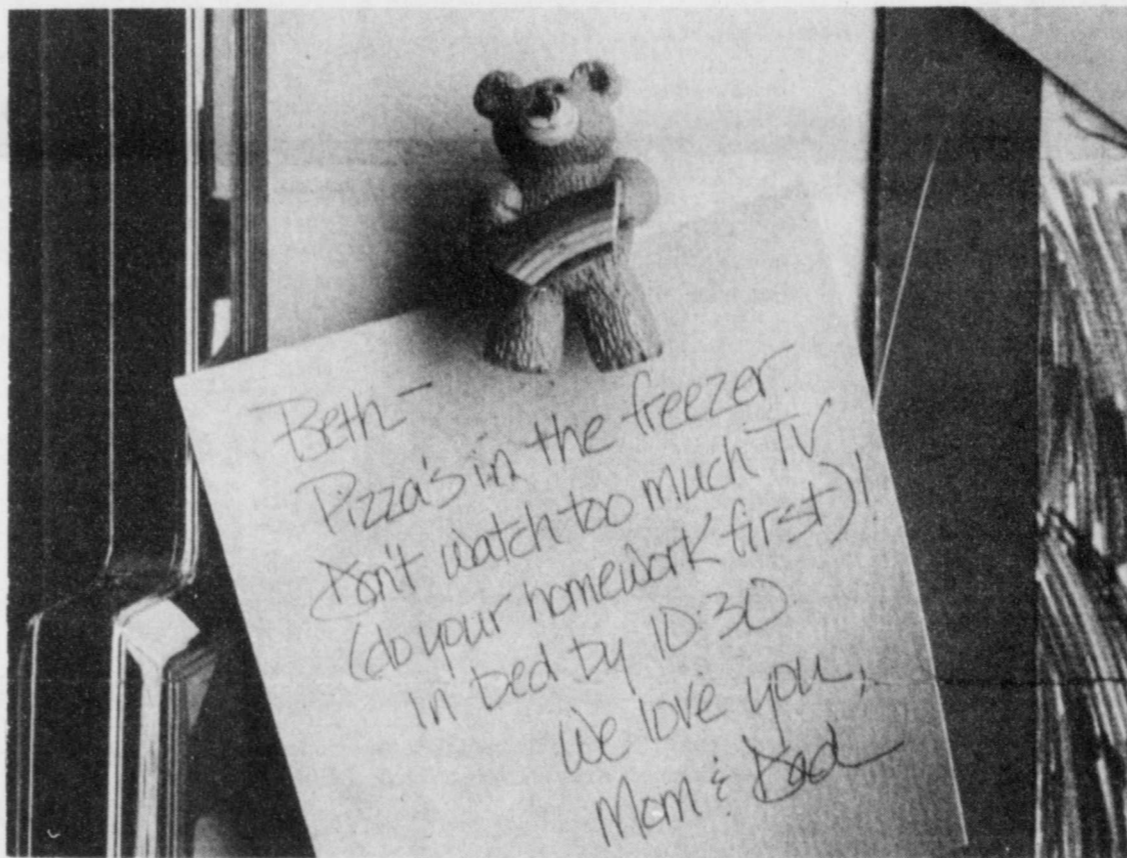 Beth-
Pizza's in the freezer.
Don't watch too much TV
(do your homework first)!
In bed by 10:30
We love you,
Mom & Dad